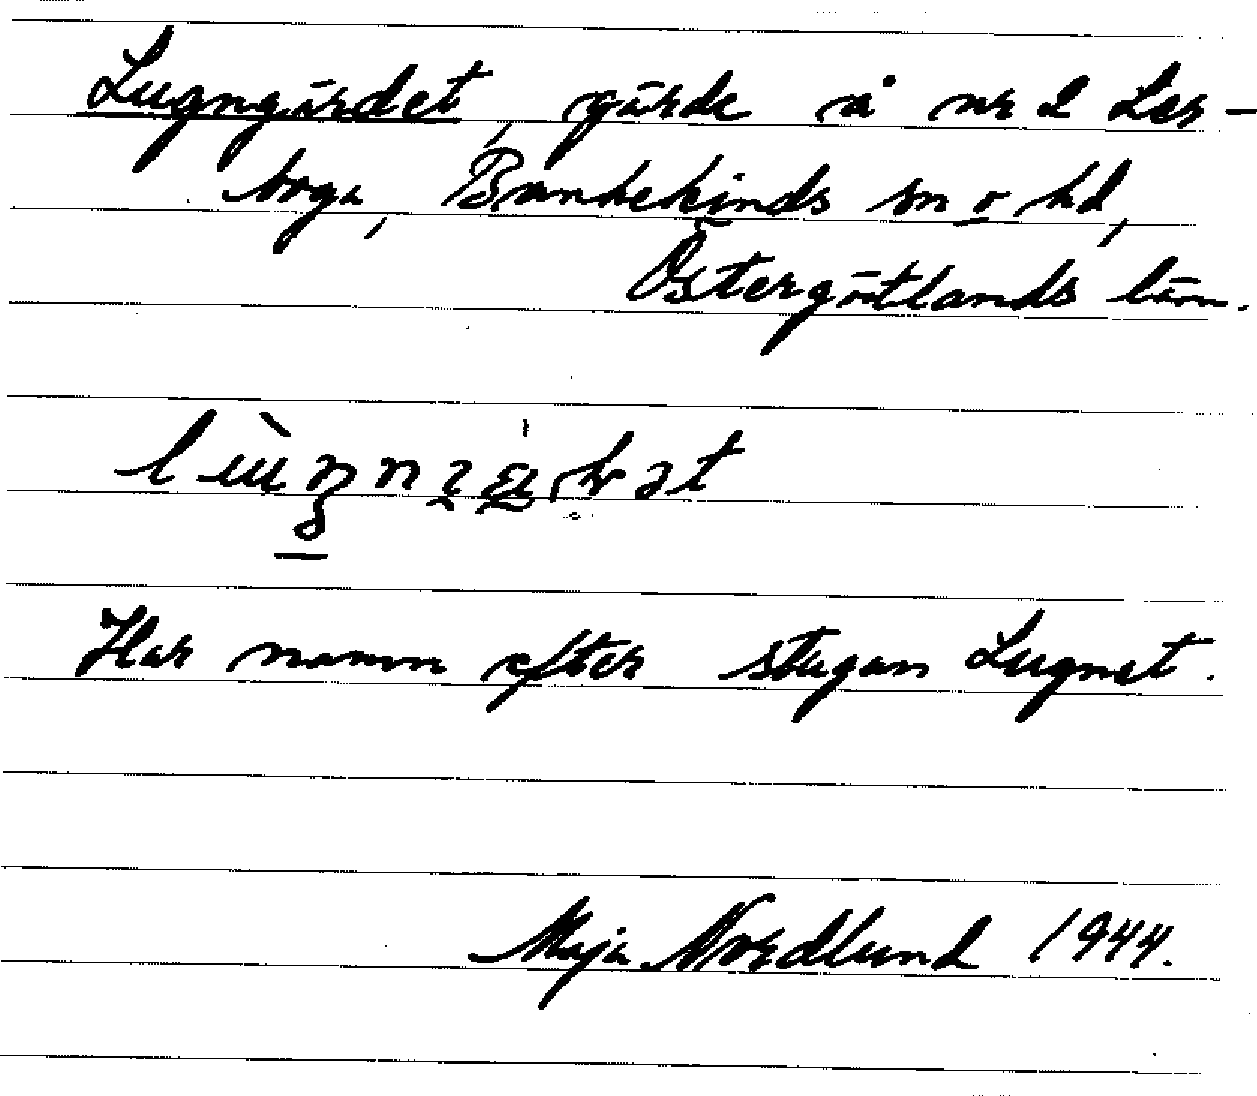 Lugngärdet, gärde å nr 2 Ler-
boga, Bankekinds sn o hd,
Östergötlands län.
Har namn efter stugan Lugnet.
Maja Nordlund 1944.